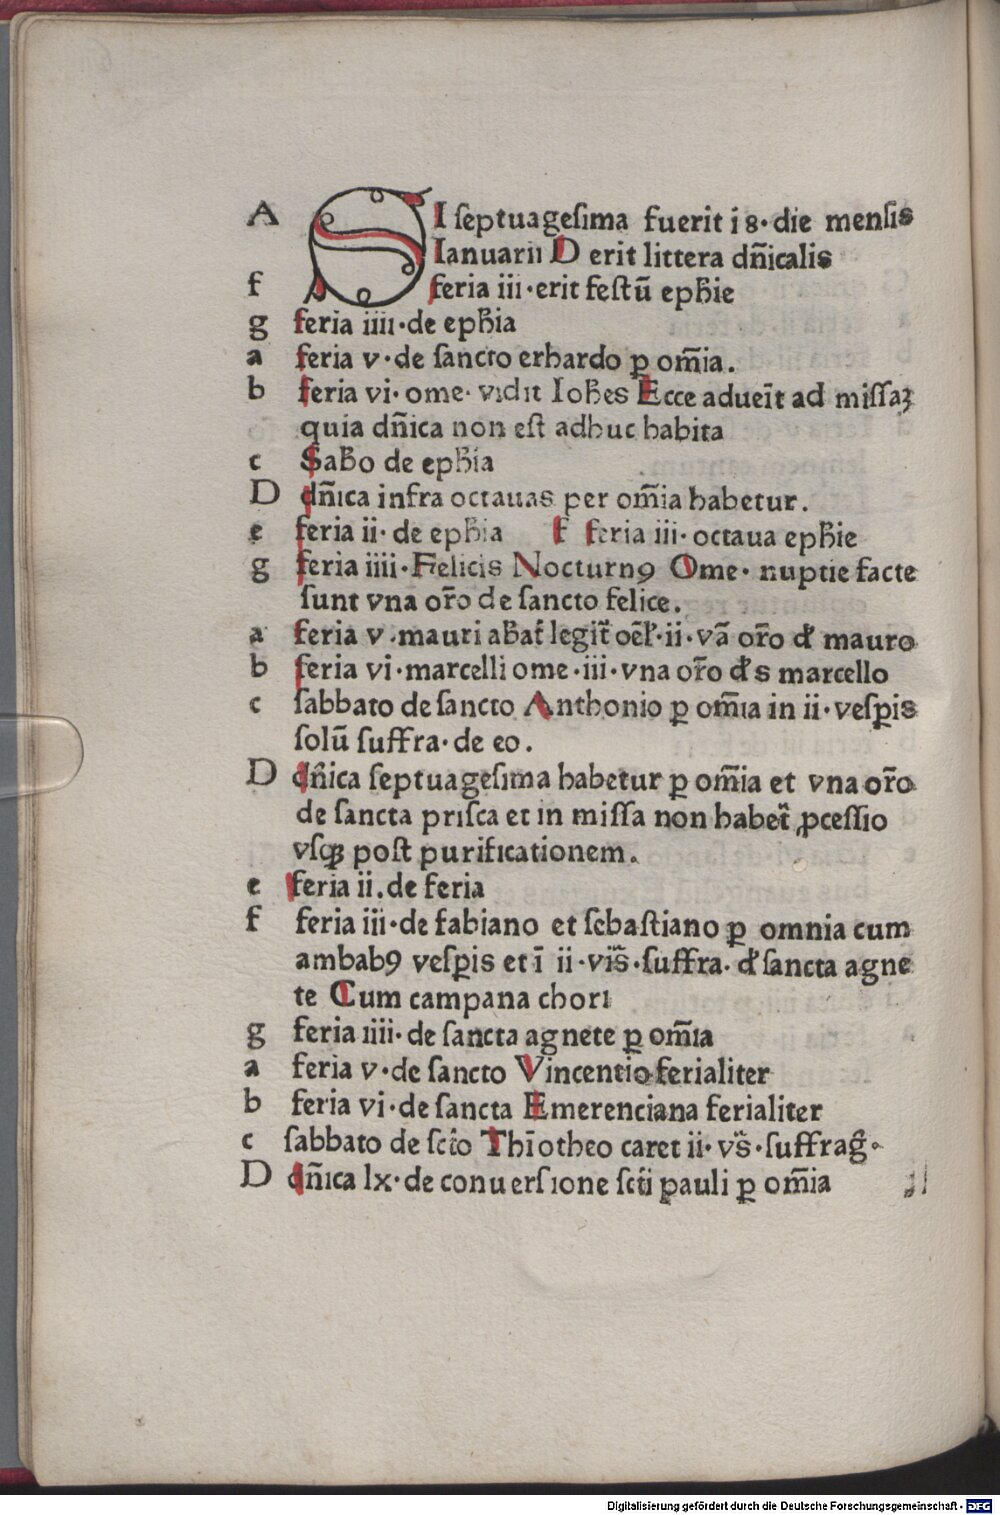 A SI ſeptuageſima fuerit i8·die menſis
Ianuarii D erit littera dn̄icalis
f feria iii·erit feſtū eph̄ie
g feria iiii·de eph̄ia
a feria v·de ſancto erhardo ꝑ om̄ia.
b feria vi·ome·vidit Ioh̄es Ecce adueīt ad miſſaꝫ
quia dn̄ica non eſt adhuc habita
c Sabb̄o de eph̄ia
D dn̄ica infra octauas per om̄ia habetur.
e feria ii·de eph̄ia f feria iii·octaua eph̄ie
g feria iiii·Felicis Nocturnꝯ Ome·nuptie facte
ſunt vna or̄o de ſancto felice.
a feria v·mauri ab̄at̄ legit̄ oēł·ii·vā or̄o đ mauro
b feria vi·marcelli ome·iii·vna or̄o đ s marcello
c ſabbato de ſancto Anthonio ꝑ om̄ia in ii·veſꝑis
ſolū ſuffra·de eo.
D dn̄ica ſeptuageſima habetur ꝑ om̄ia et vna or̄o
de ſancta priſca et in miſſa non habet̄ ꝓceſſio
vſqꝫ poſt purificationem.
e feria ii.de feria
f feria iii·de fabiano et ſebaſtiano ꝑ omnia cum
ambabꝯ veſꝑis et ī ii·vis̄·ſuffra·đ ſancta agne
te Cum campana chori
g feria iiii·de ſancta agnete ꝑ om̄ia
a feria v·de ſancto Vincentio ferialiter
b feria vi·de ſancta Emerenciana ferialiter
c ſabbato de ſct̄o Thīotheo caret ii·vs̄·ſuffraḡ·
D dn̄ica lx·de conuerſione ſct̄i pauli ꝑ om̄ia
Digitalisierung gefördert durch die Deutsche Forschungsgemeinschaft - DFG